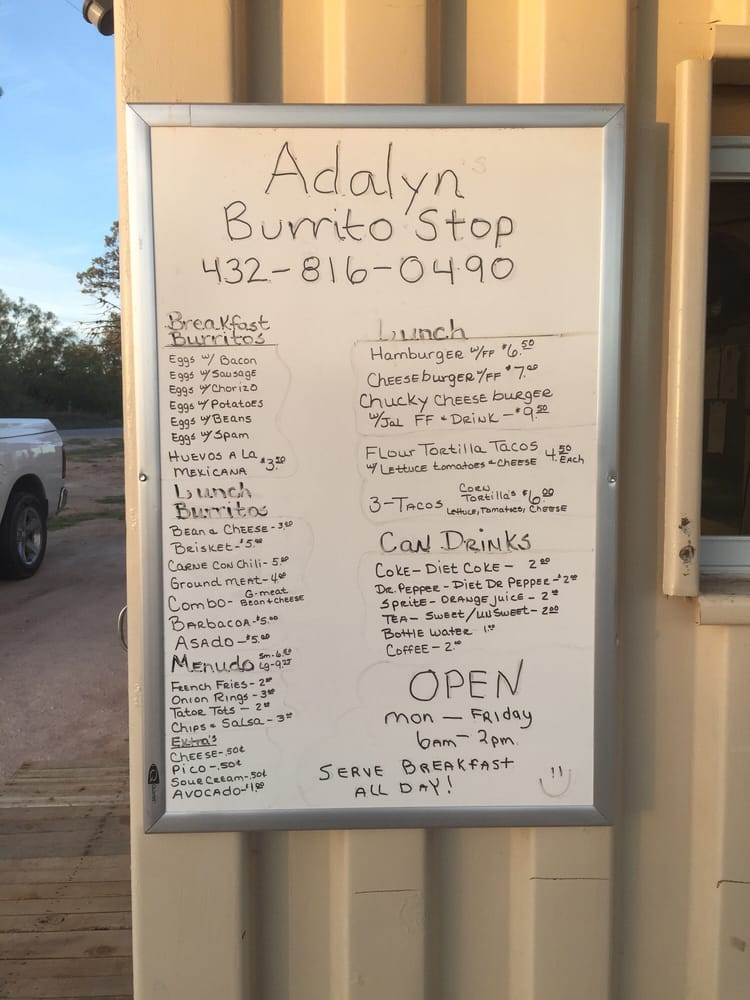 Adalyn's
Burrito Stop
432-816-0490
Breakfast
Burritos
Eggs w/ Bacon
Eggs w/ Sausage
Eggs w/ Chorizo
Eggs w/ Potatoes
Eggs w/ Beans
Eggs w/ Spam
Huevos a la
Mexicana $3.50
Lunch
Burritos
Bean & Cheese - 3.00
Brisket - $5.00
Carne con Chili - 5.00
Ground Meat - 4.00
Combo - G. meat
Bean & Cheese
Barbacoa - $5.00
Asado - $5.00
Menudo Sm - 6.50
Lg - 9.25
French Fries - 2.00
Onion Rings - 3.00
Tator Tots - 2.00
Chips & Salsa - 3.00
Extra's
Cheese - .50¢
Pico - .50¢
Sour Cream - .50¢
Avocado - $1.00
Lunch
Hamburger w/FF $6.50
Cheeseburger w/FF $7.00
Chucky Cheese burger
w/Jal FF & Drink - $9.50
Flour Tortilla Tacos 4.50
w/ Lettuce tomatoes & Cheese Each
3-Tacos Corn
Tortilla's $6.00
Lettuce, Tomatoes, Cheese
Can Drinks
Coke - Diet Coke - 2.00
Dr. Pepper - Diet Dr Pepper - $2.00
Sprite - Orange Juice - 2.00
Tea - Sweet/UnSweet - 2.00
Bottle Water 1.00
Coffee - 2.00
OPEN
Mon — Friday
6am - 2pm
Serve Breakfast
All Day!